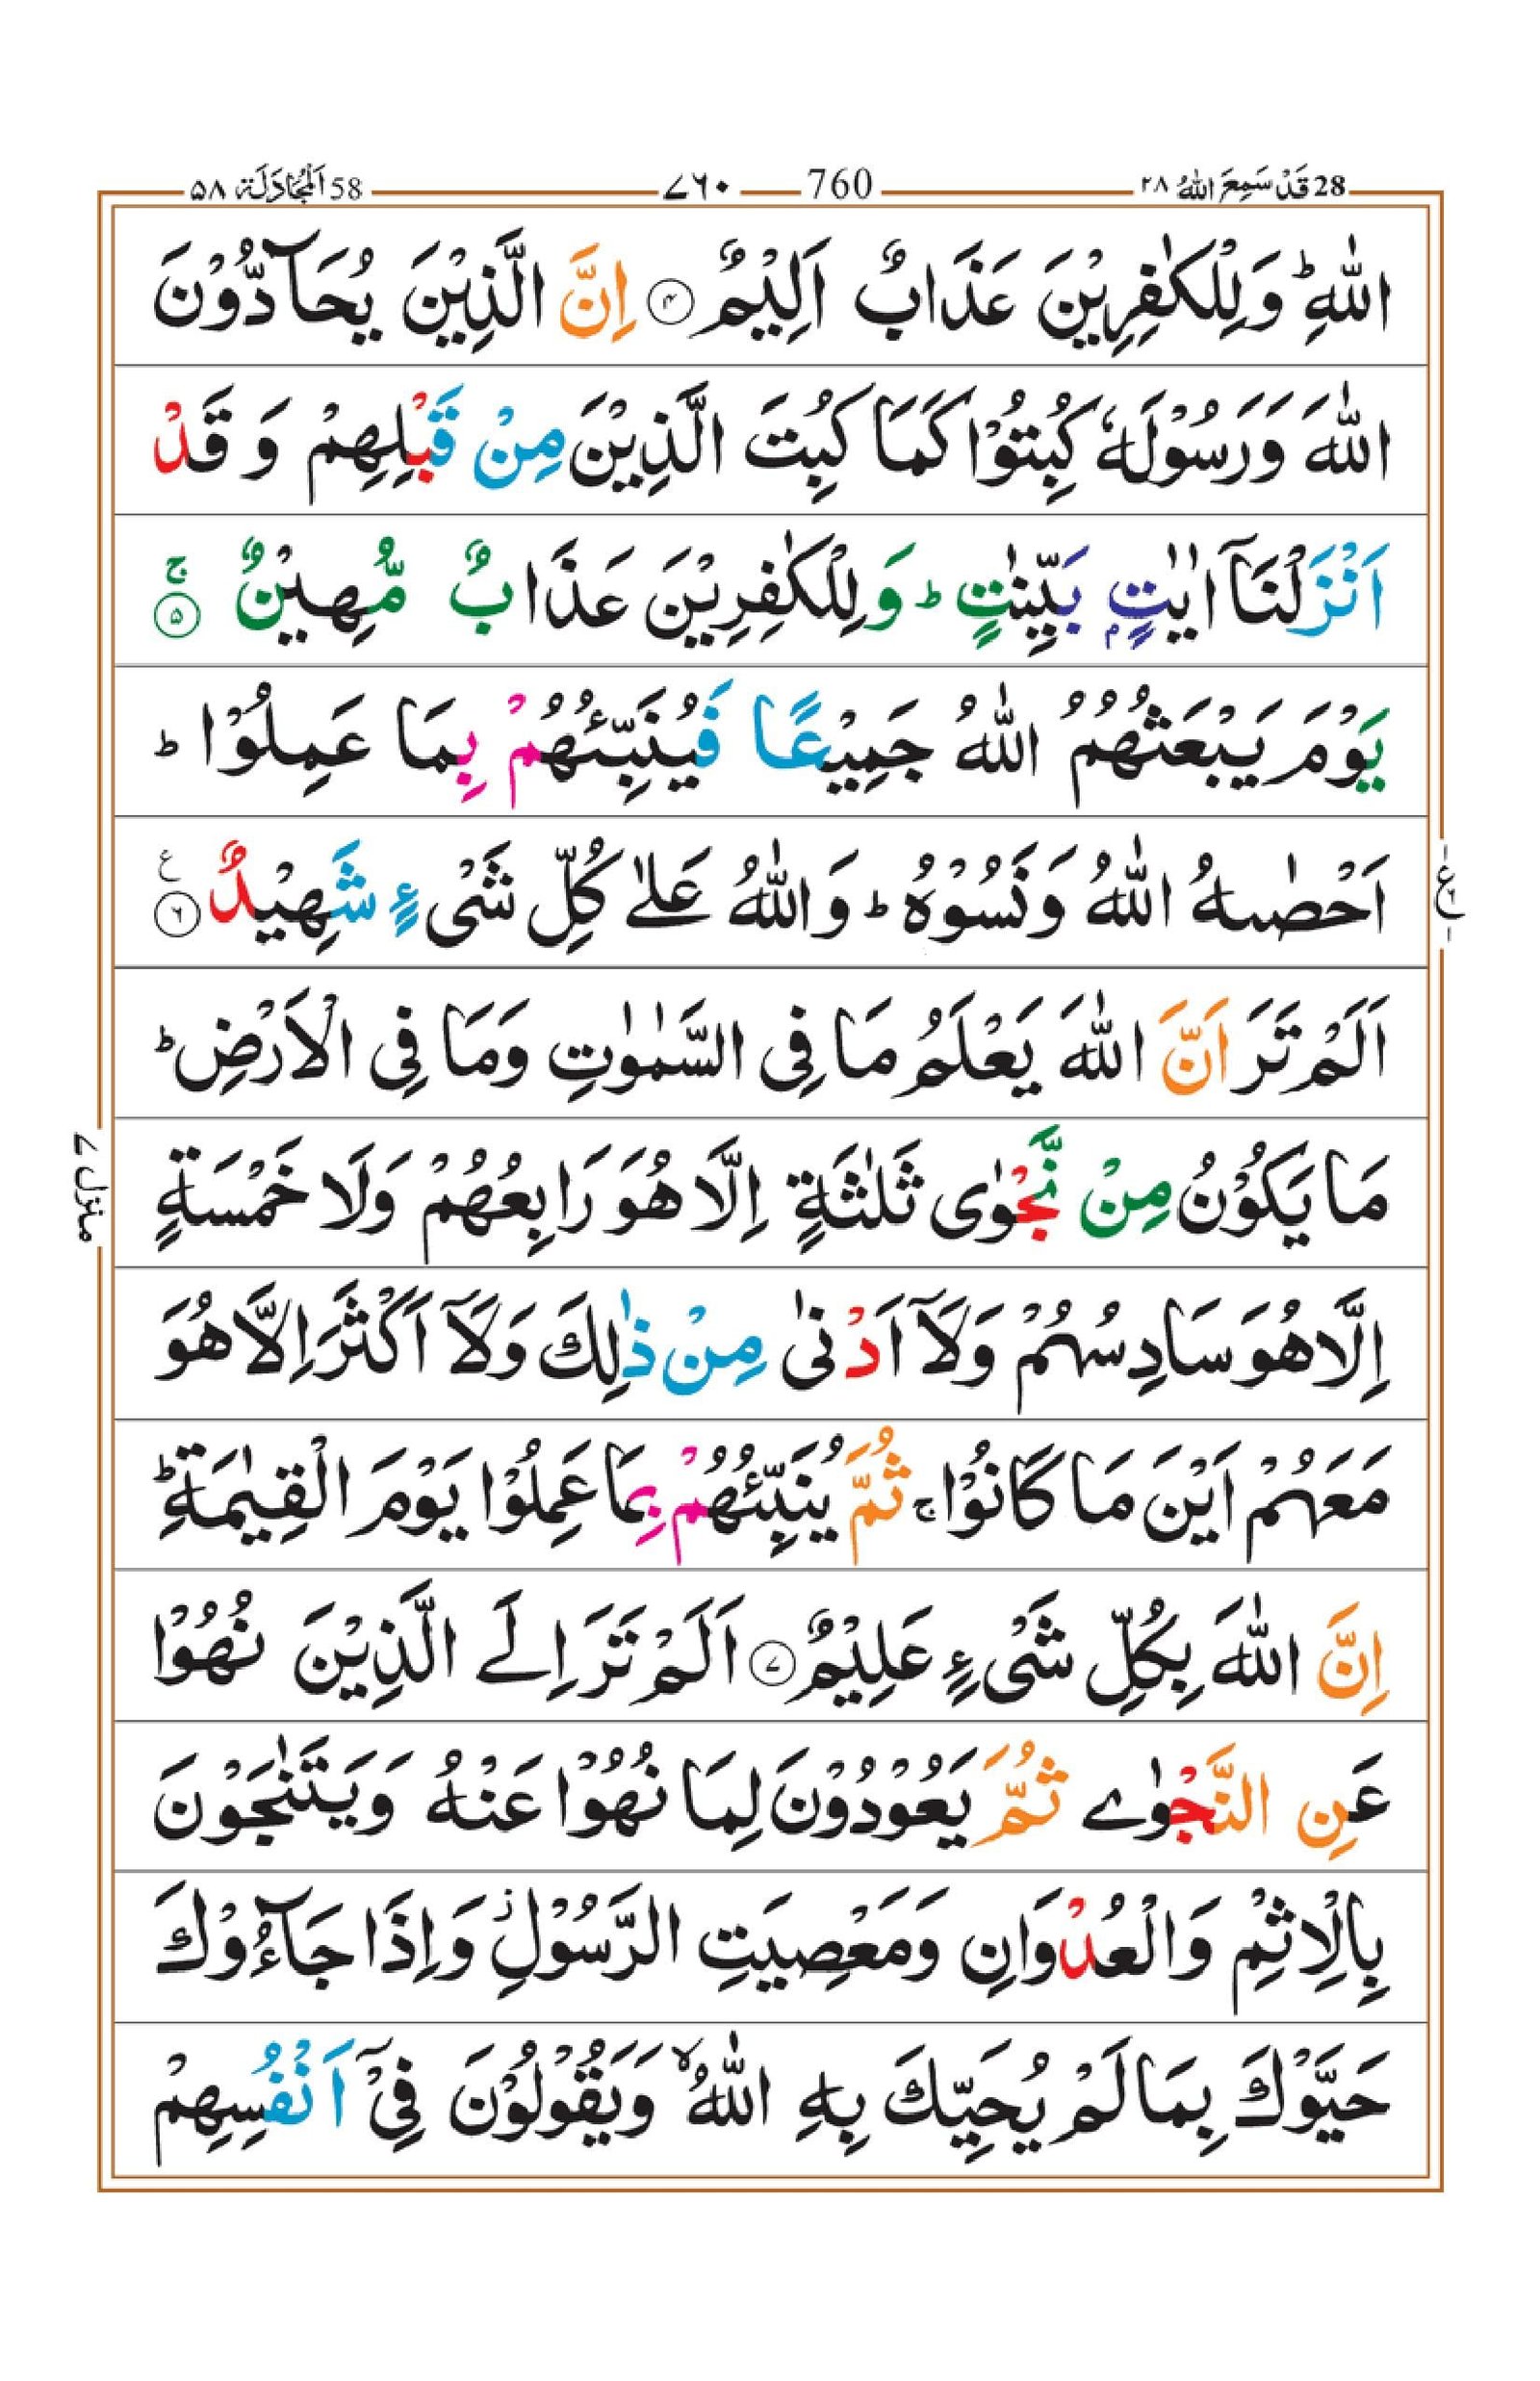 28 قَدْ سَمِعَ اللّٰهُ ٢٨
760 ٧٦٠
58 اَلْمُجَادَلَة ٥٨
اللّٰهِ ؕ وَ لِلْكٰفِرِيْنَ عَذَابٌ اَلِيْمٌ ﴿۴﴾ اِنَّ الَّذِيْنَ يُحَآدُّوْنَ
اللّٰهَ وَ رَسُوْلَهٗ كُبِتُوْا كَمَا كُبِتَ الَّذِيْنَ مِنْ قَبْلِهِمْ وَ قَدْ
اَنْزَلْنَآ اٰيٰتٍۭ بَيِّنٰتٍ ؕ وَ لِلْكٰفِرِيْنَ عَذَابٌ مُّهِيْنٌ ۚ ﴿۵﴾
يَوْمَ يَبْعَثُهُمُ اللّٰهُ جَمِيْعًا فَيُنَبِّئُهُمْ بِمَا عَمِلُوْا ؕ
اَحْصٰىهُ اللّٰهُ وَ نَسُوْهُ ؕ وَ اللّٰهُ عَلٰے كُلِّ شَیْءٍ شَهِيْدٌ ﴿۶﴾ ع
ع
اَلَمْ تَرَ اَنَّ اللّٰهَ يَعْلَمُ مَا فِی السَّمٰوٰتِ وَ مَا فِی الْاَرْضِ ؕ
مَا يَكُوْنُ مِنْ نَّجْوٰی ثَلٰثَةٍ اِلَّا هُوَ رَابِعُهُمْ وَ لَا خَمْسَةٍ
منزل ٧
اِلَّا هُوَ سَادِسُهُمْ وَ لَآ اَدْنٰی مِنْ ذٰلِكَ وَ لَآ اَكْثَرَ اِلَّا هُوَ
مَعَهُمْ اَيْنَ مَا كَانُوْا ۚ ثُمَّ يُنَبِّئُهُمْ بِمَا عَمِلُوْا يَوْمَ الْقِيٰمَةِ ؕ
اِنَّ اللّٰهَ بِكُلِّ شَیْءٍ عَلِيْمٌ ﴿۷﴾ اَلَمْ تَرَ اِلَے الَّذِيْنَ نُهُوْا
عَنِ النَّجْوٰے ثُمَّ يَعُوْدُوْنَ لِمَا نُهُوْا عَنْهُ وَ يَتَنٰجَوْنَ
بِالْاِثْمِ وَ الْعُدْوَانِ وَ مَعْصِيَتِ الرَّسُوْلِ ؗ وَ اِذَا جَآءُوْكَ
حَيَّوْكَ بِمَا لَمْ يُحَيِّكَ بِهِ اللّٰهُ ۙ وَ يَقُوْلُوْنَ فِیْۤ اَنْفُسِهِمْ